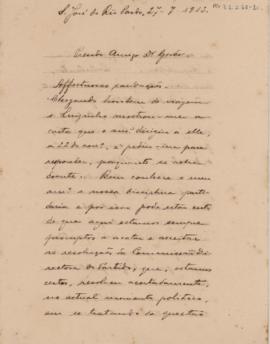 S. José do Rio Pardo, 27-7-1913.
Presado Amigo Dr.
Affectuosas saudações.
Chegando hontem de viagem
o Luizinho mostrou-me a
carta que o am.º dirigiu a elle,
a 22 do corr.e, e pediu-me para
responder, porquanto se acha
doente. Bem conhece o meu
am.º a nossa disciplina parti-
daria e por isso pode estar certo
de que aqui estamos sempre
promptos a acatar e acceitar
as resoluções da Commissão Di-
rectora do Partido, que, estamos
certos, resolveu acertadamente,
no actual momento politico,
em se tratando da questão